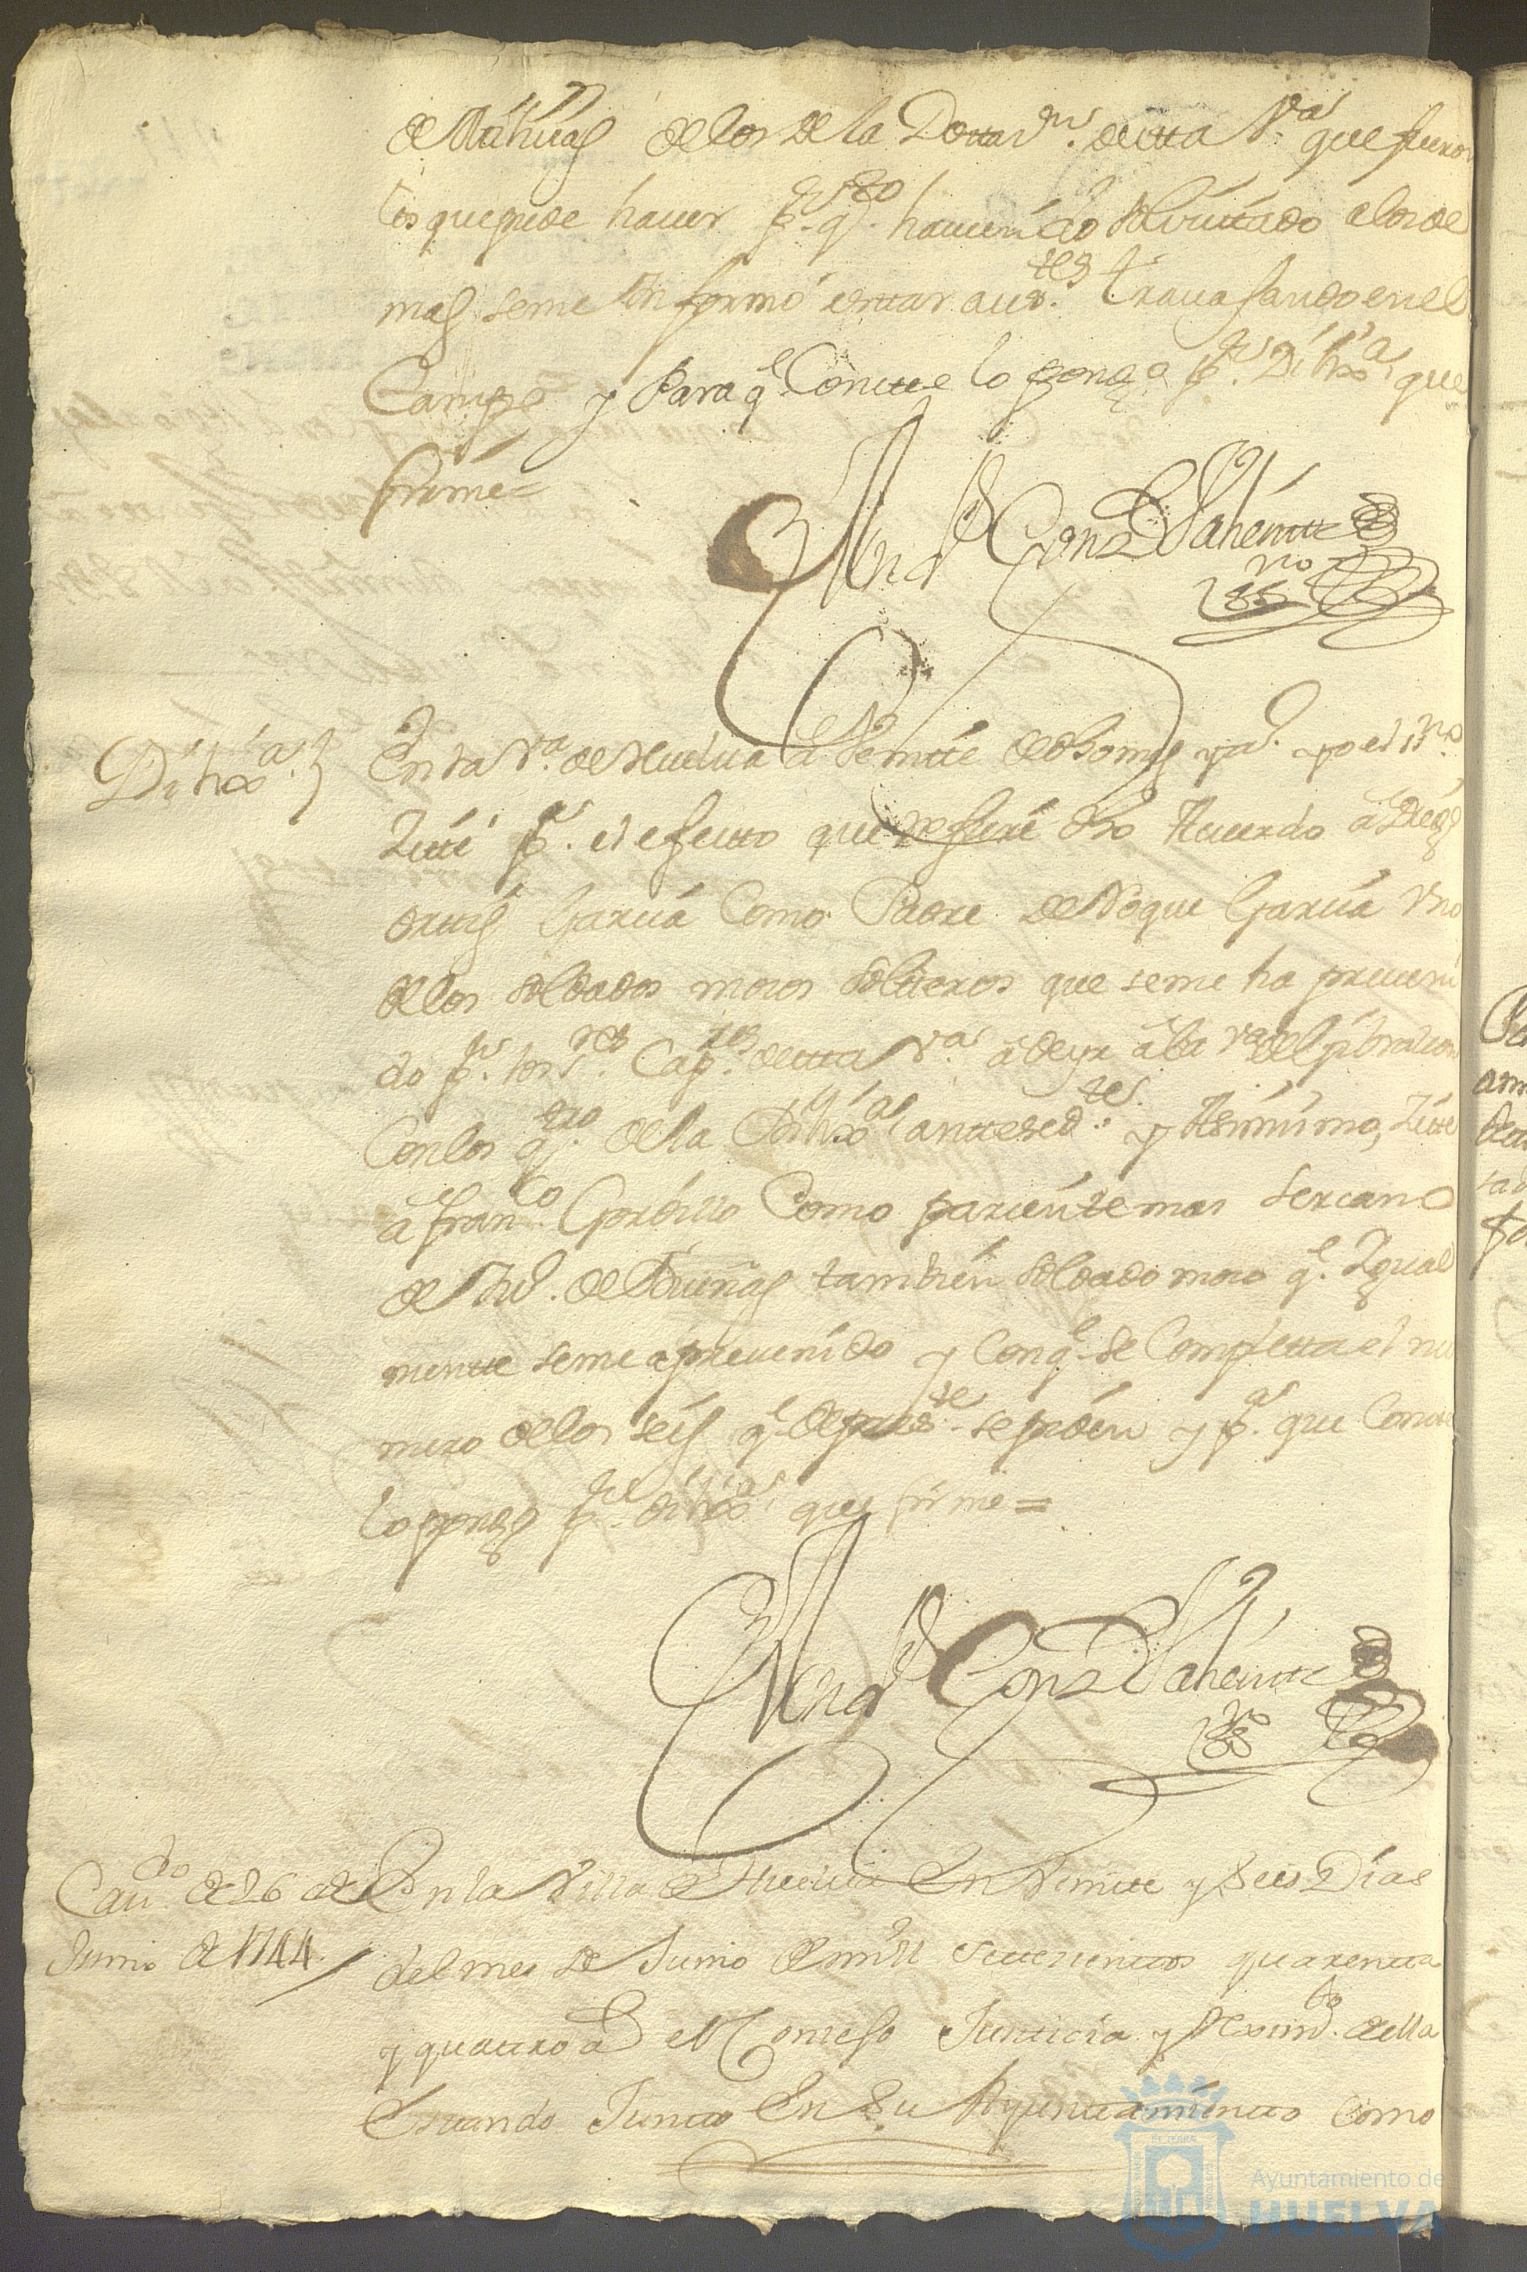 de Milicias de los de la Dotaz.on de esta V.a que fueron
los que pude haver p.r q.to haviendo solicitado a los de
mas se me informó estar aus.tes travajando en el
Campo y Para q.e Conste lo pongo p.r Dilix.a que
firmé=
And.s Gonz Vahemtte
ss.no
Dilix.a
En la V.a de Huelva dho mes y a.o yo el ss.no
Zité p.a el efecto que refiere dho Acuerdo a
Garcia Como Padre de Roque Garcia Vno
de los soldados mozos solteros que se me ha preveni
do p.r los ss.res Cap.res de esta V.a
Con los q.tro de la Dilix.a antesed.te y Asimismo, Zité
a Fran.co Gordillo Como pariente mas sercano
de de Dueñas tambien soldado mozo q.e Igual
mente se me a prevenido y Con q.e se Completta el nu
mero de los seis q.e de pres.te se piden y p.a que Conste
lo pongo p.r dilix.a que firmé=
And.s Gonz Vahemtte
ss.no
Cav.do de 26 de
Junio de 1744
En la Villa de Huelva En Veintte y Seis Dias
del mes de Junio de mill settecientos quarentta
y quattro a.s el Consejo Justicia y Reximi.to de ella
Estando Junto En Su Ayuntamiento Como
Ayuntamiento de
HUELVA